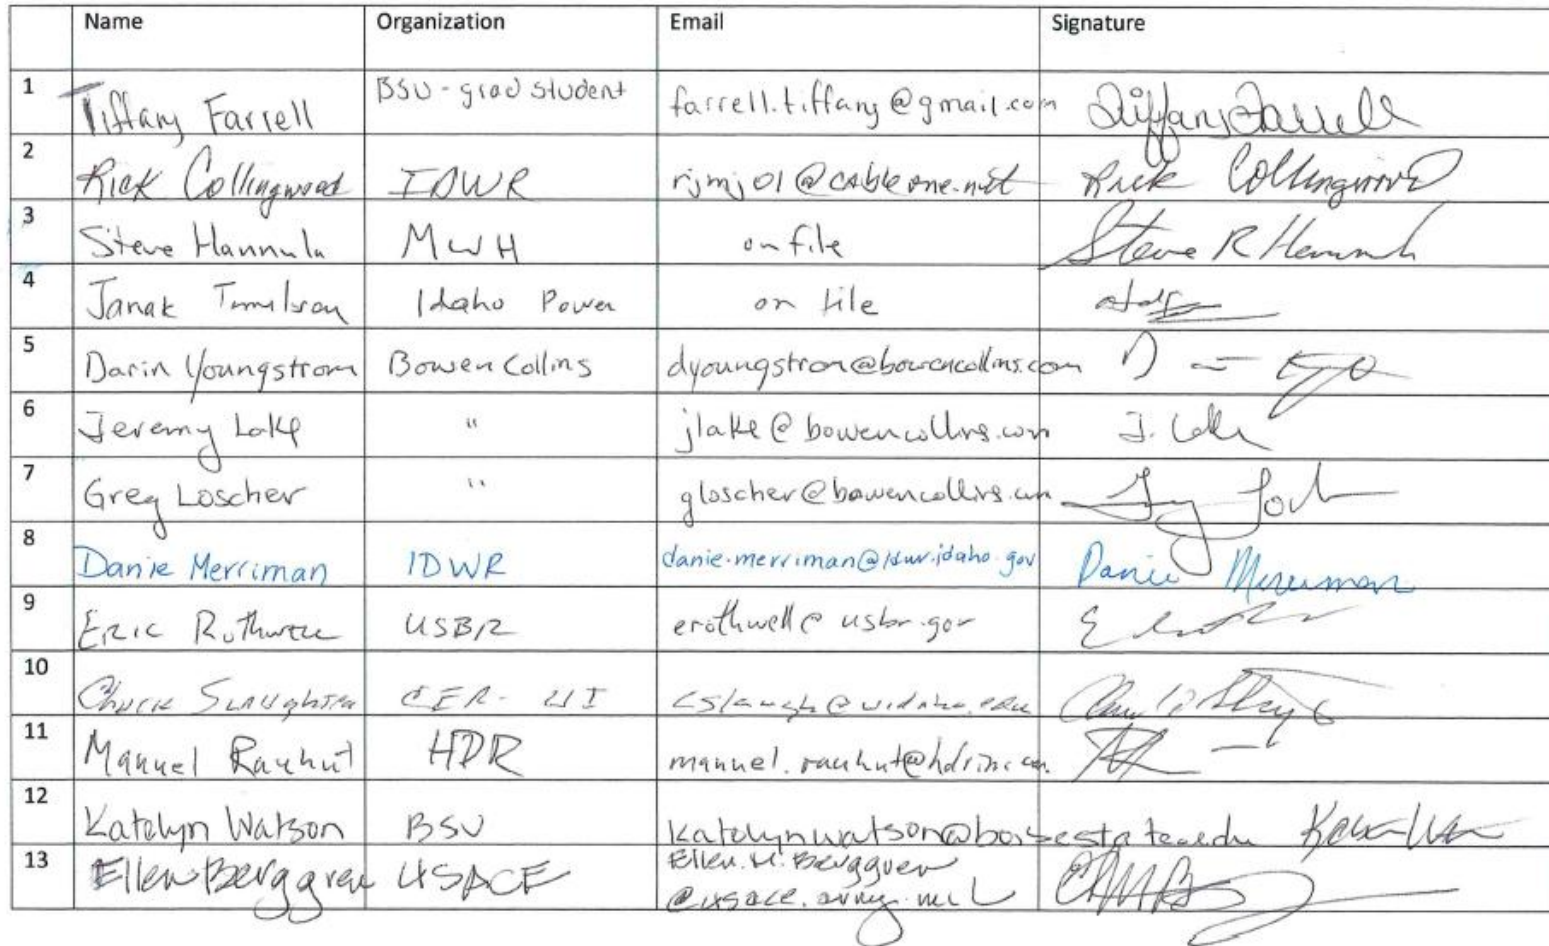 Name Organization Email Signature
1 Tiffany Farrell BSU - grad student farrell.tiffany@gmail.com Tiffany Farrell
2 Rick Collingwood IDWR rjmj01@cableone.net Rick Collingwood
3 Steve Hannula MWH on file Steve R Hannula
4 Janak Idaho Power on file
5 Darin Youngstrom Bowen Collins dyoungstrom@bowencollins.com
6 Jeremy Lake " jlake@bowencollins.com J. Lake
7 Greg Loscher " gloscher@bowencollins.com Greg
8 Danie Merriman IDWR danie.merriman@idwr.idaho.gov Danie Merriman
9 Eric Rothwell USBR erothwell@usbr.gov
10 Chuck Slaughter CER - UI cslaugh@uidaho.edu
11 Manuel Rauhut HDR manuel.rauhut@hdrinc.com
12 Katelyn Watson BSU katelynwatson@boisestate.edu
13 Ellen Berggren USACE Ellen.M.Berggren
@usace.army.mil